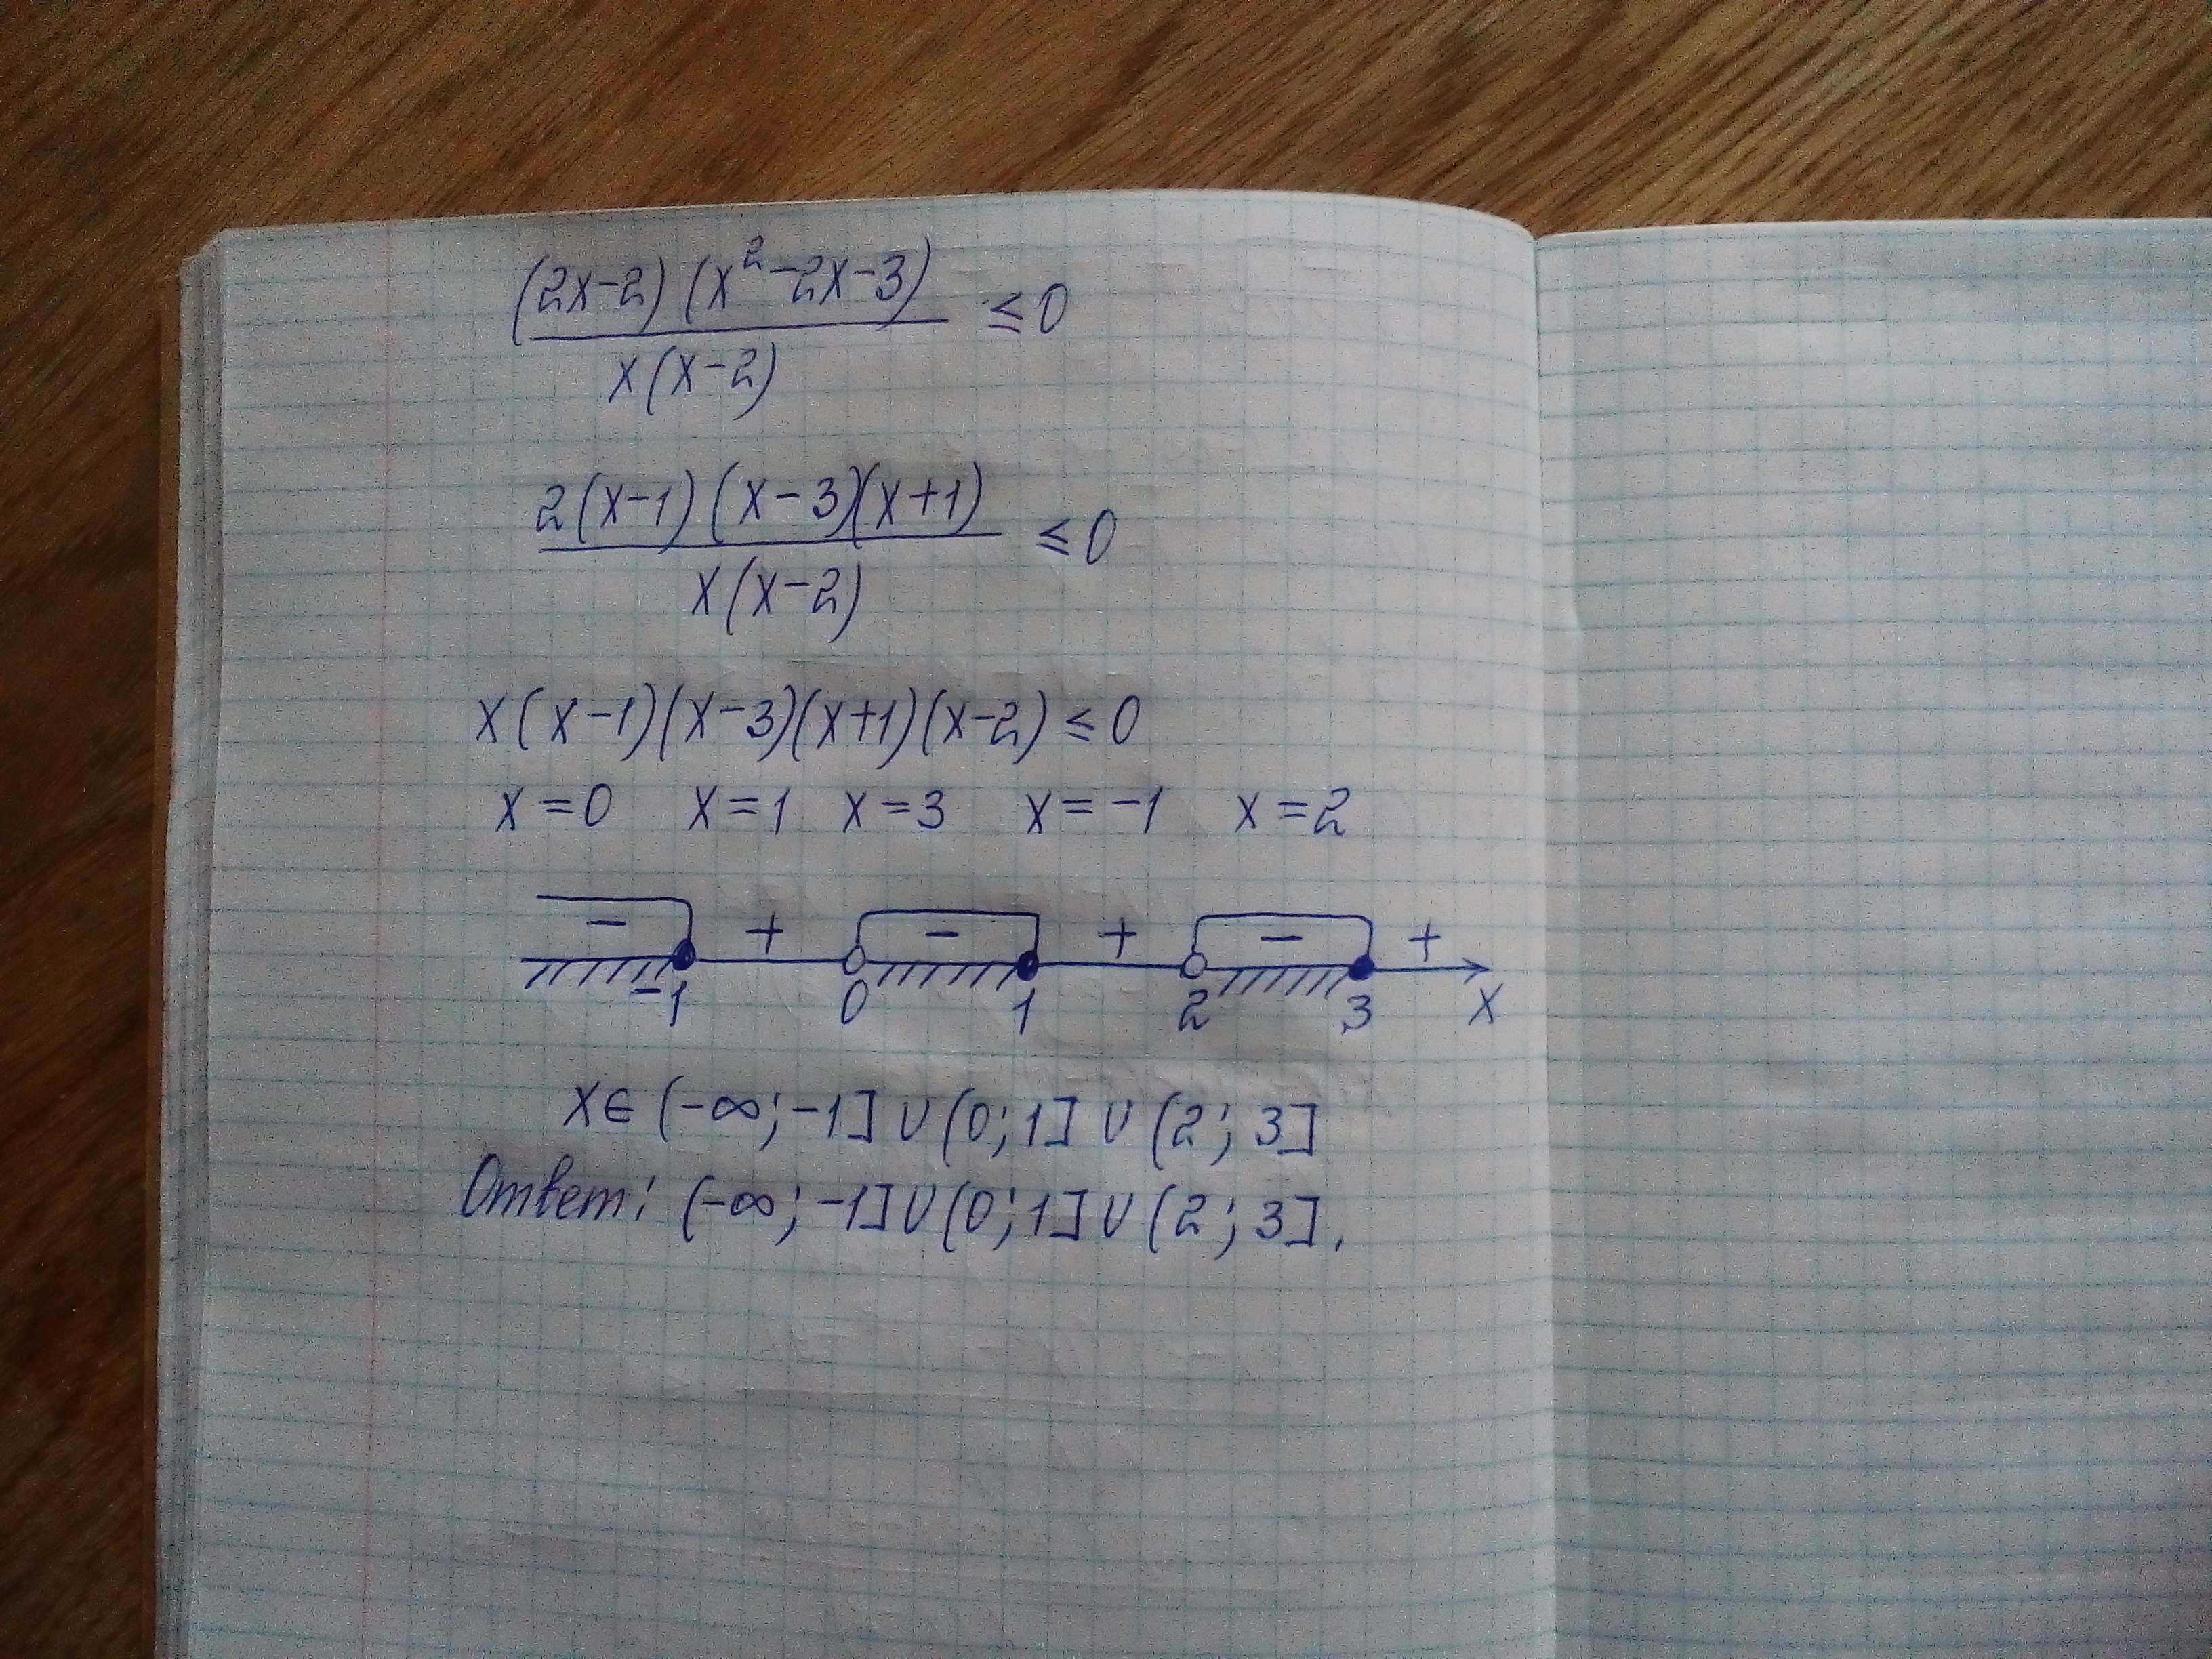 (2x-2)(x²-2x-3) ≤ 0
x(x-2)
2(x-1)(x-3)(x+1) ≤ 0
x(x-2)
x(x-1)(x-3)(x+1)(x-2) ≤ 0
x=0 x=1 x=3 x=-1 x=2
- + - + - +
-1 0 1 2 3 x
x∈(-∞;-1]∪(0;1]∪(2;3]
Ответ: (-∞;-1]∪(0;1]∪(2;3].